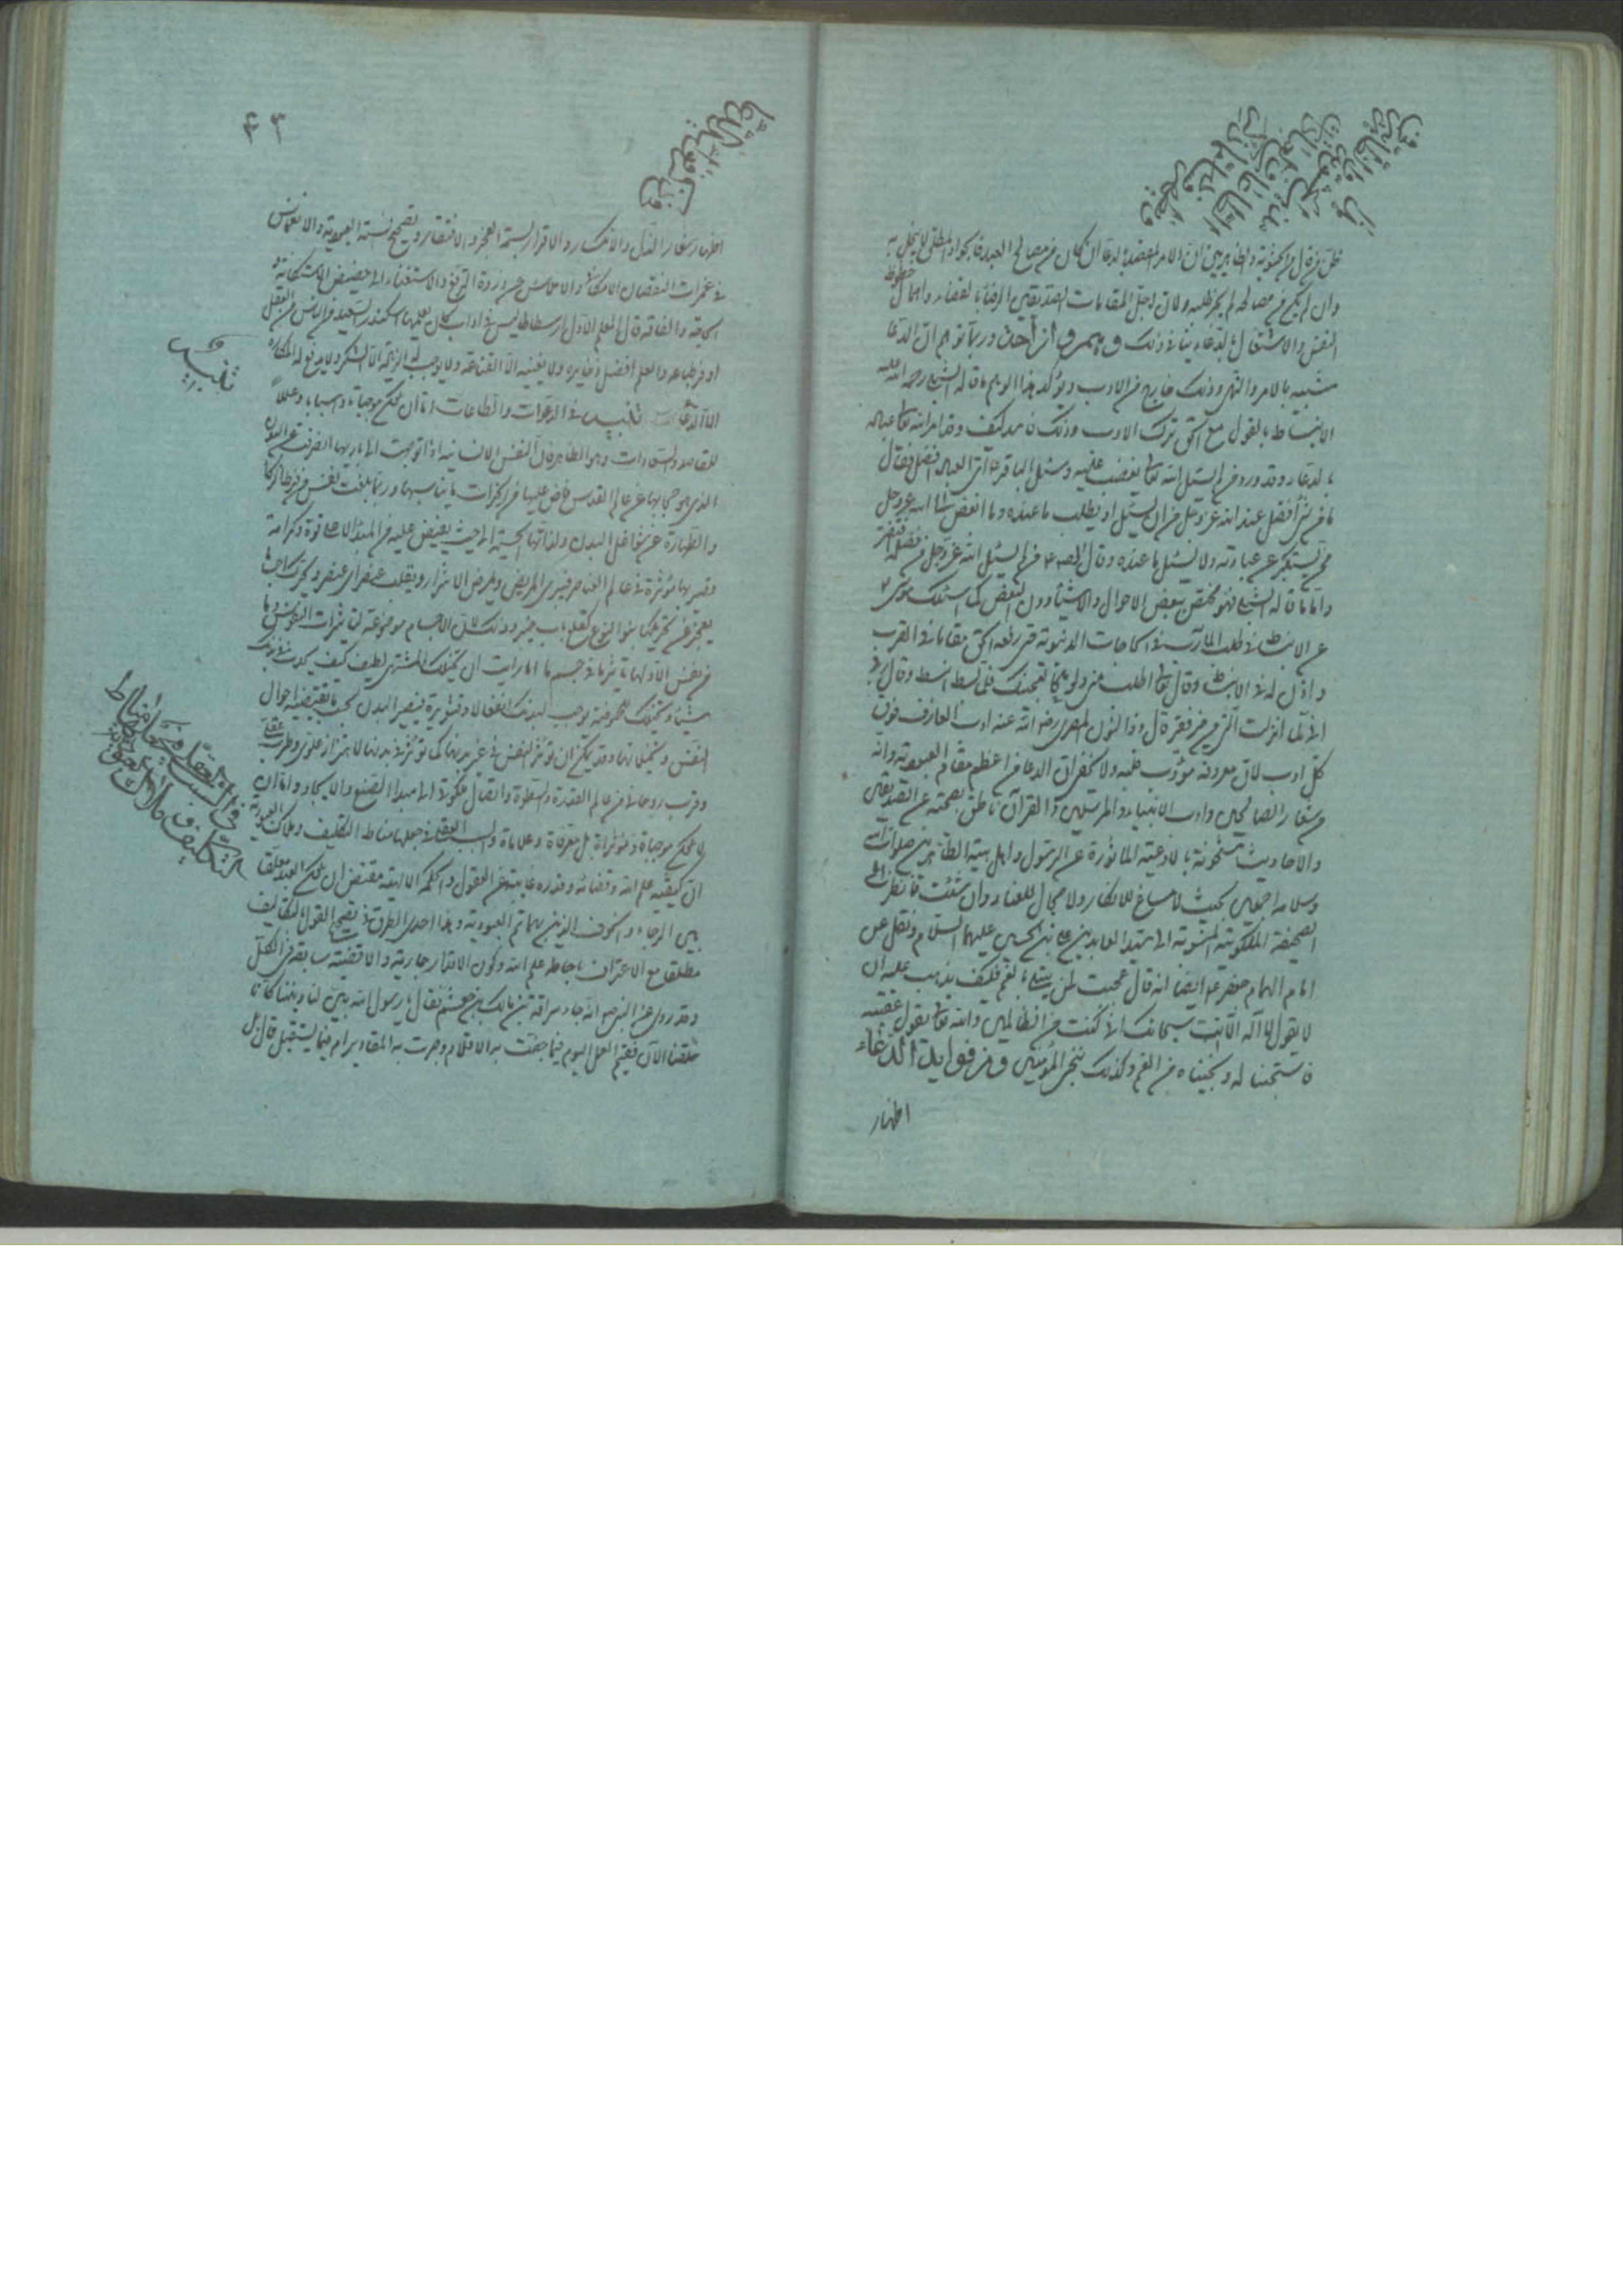 ظن من قال من الحشوية والظاهريين ان الامر المقصود بالدعا ان كان من مصالح العبد فالجواد المطلق لا يبخل به
وان لم يكن من مصالحه لم يجز طلبه ولان اجل المقامات للصديقين الرضا بالقضاء واهمال حظوظ
النفس والاشتغال بالدعاء ينافي ذلك وربما توهم ان الدعا
شبيه بالامر والنهي وذلك خارج من الادب ويؤكد هذا الوهم ما قاله الشبلي رحمه الله
الانبساط بالقول مع الحق ترك الادب وذلك فاسد كيف وقد امر الله تعالى عباده
بالدعاء وقد ورد من لم يسئل الله تعالى يغضب عليه وسئل الباقر ع اى العبادة افضل فقال
ما من شئ افضل عند الله عز وجل من ان يسئل او يطلب ما عنده وما ابغض الى الله عز وجل
ممن يستكبر عن عبادته ولا يسئل ما عنده وقال الصادق ع من لم يسئل الله عز وجل من فضله افتقر
واما ما قاله الشبلي فهو مختص ببعض الاحوال والاشياء دون البعض كما امسك موسى ع
عن الانبساط في طلب المآرب في الحاجات الدنيوية حتى رفعه الحق مقاما في القرب
واذن له في الانبساط وقال تعالى اطلب منى ولو ملحا لعجينك فلما بسط انبسط وقال رب
انى لما انزلت الى من خير فقير قال ذو النون المصرى رضى الله عنه ادب العارف فوق
كل ادب لان معروفه مؤدب قلبه ولا يخفى ان الدعا من اعظم مقام العبودية وانه
من شعار الصالحين واداب الانبياء والمرسلين والقرآن ناطق بصحته عن الصديقين
والاحاديث مشحونة بالادعية الماثورة عن الرسول واهل بيته الطاهرين صلوات الله
وسلامه اجمعين بحيث لا مساغ للانكار ولا مجال للعناد وان شئت فانظر الى
الصحيفة الملكوتية المنسوبة الى سيد العابدين على بن الحسين عليهما السلام ونقل عن
امام الهمام جعفر ع ايضا انه قال عجبت لمن يبتلى بالغم فكيف يذهب عليه ان
لا يقول لا اله الا انت سبحانك انى كنت من الظالمين والله تعالى يقول عقيبه
فاستجبنا له ونجيناه من الغم وكذلك ننجى المؤمنين ومن فوايد الدعاء
اظهار
ومن فوايد الدعا
اظهار شعار الذل والانكسار والاقرار بسمة العجز والافتقار وتصحيح نسبة العبودية والانغماس
في غمرات النقصان الامكانى والافلاس عن ذروة الترفع والاستغناء الى حضيض الاستكانة و
الحاجة والفاقة قال المعلم الاول ارسطاطاليس في اداب كان يعلمها اسكندر السعيد من الناس من العقل
اوفر طباعه والعلم افضل ذخايره ولا يغنيه الا القناعة ولا يوجب له الزيادة الا الشكر ولا يدفع له المكاره
الا الدعاء تلخيص في الدعوات والطاعات اما ان تكون موجبات واسبابا وعللا
للمقاصد والسعادات وهو الظاهر فان النفس الانسانية اذا توجهت الى باريها انصرفت عن البدن
الذى هو حجابها عن عالم القدس فاض عليها من الخيرات ما يناسبها وربما بلغت نفس من فرط الزكا
والطهارة عن شواغل البدن ولذاتها الحسية الى حيث يفيض عليه من المبدا الاعلى قوة وكرامة
وتصير بها مؤثرة في عالم العناصر فيبرى المريض ويمرض الاشرار ويقلب عنصرا عن عنصر ويحرك اجساما
يعجز عن تحريكها بنو النوع كقلع باب خيبر وذلك لان الاجسام موضوعة لتاثيرات النفوس وما
من نفس الا ولها تاثير ما في جسم ما اما رايت ان تخيلك المشتهى لطيف كيف يحدث في بدنك
شيئا وتخيلك الحموضة يوجب لبدنك انفعالا وقشعريرة فيتغير البدن بحسب ما تقتضيه احوال
النفس وتخيلاتها وقد يمكن ان تؤثر النفس في غير بدنها كما تؤثر في بدنها لاهتزاز علوى وطرب عقلى
وقرب روحانى من عالم القدرة والسطوة واتصال ملكوتى الى مبدا الصنع والايجاد واما ان
لا تكون موجبات ومؤثرات بل معرفات وعلامات والسبب العقلى في جعلها مناط التكليف وملاك العبودية
ان كيفية علم الله وقضائه وقدره غايبة عن العقول والحكمة الالهية مقتضى ان يكون العبد معلقا
بين الرجاء والخوف الذين بهما تم العبودية وهذا احدى الطرق في تصحيح القول بالتكاليف
مطلقا مع الاعتراف باحاطة علم الله وكون الاقدار جارية والاقضية سابقة في الكل
وقد روى عن النبى ص انه جاء سراقة بن مالك بن جعشم فقال يا رسول الله بين لنا ديننا كانا
خلقنا الان ففيم العمل اليوم فيما جفت به الاقلام وجرت به المقادير ام فيما يستقبل قال بل
تلخيص